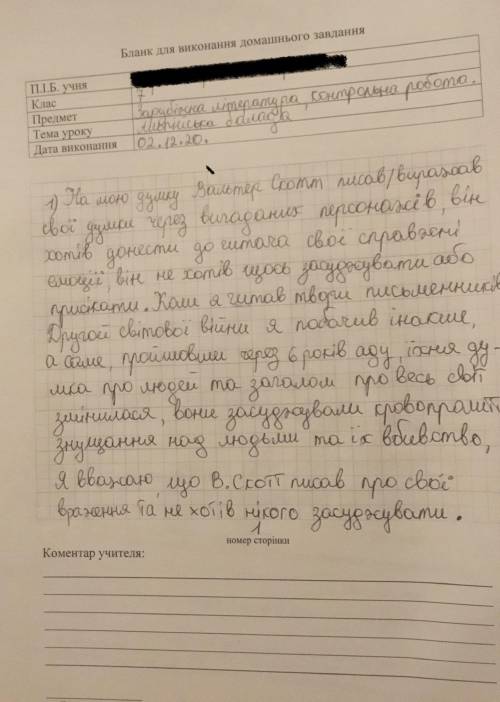 Бланк для виконання домашнього завдання
П.І.Б. учня
Клас 7
Предмет Зарубіжна література, контрольна робота.
Тема уроку балада
Дата виконання 02.12.20.
1) На мою думку Вальтер Скотт писав/виражав
свої думки через вигаданих персонажів, він
хотів донести до читача свої справжні
емоції, він не хотів щось засуджувати або
присікати. Коли я читав твори письменників
Другої світової війни я побачив інакше,
а саме, пройшовши через 6 років аду, їхня ду-
мка про людей та загалом про весь світ
змінилася, вони засуджували кровопролиття
знущання над людьми та їх вбивство,
я вважаю, що В.Скотт писав про свої
враження та не хотів нікого засуджувати.
1
номер сторінки
Коментар учителя: